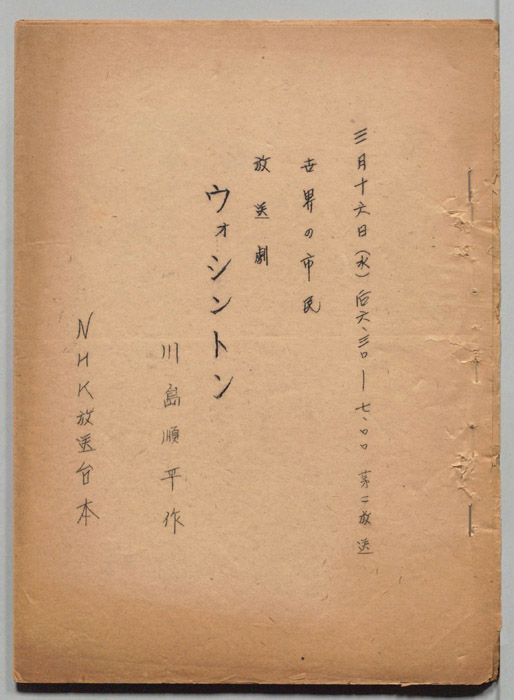 三月十六日(水)后六、三〇ー七、〇〇 第二放送
世界の市民
放送劇
ウォシントン
川島順平作
NHK放送台本